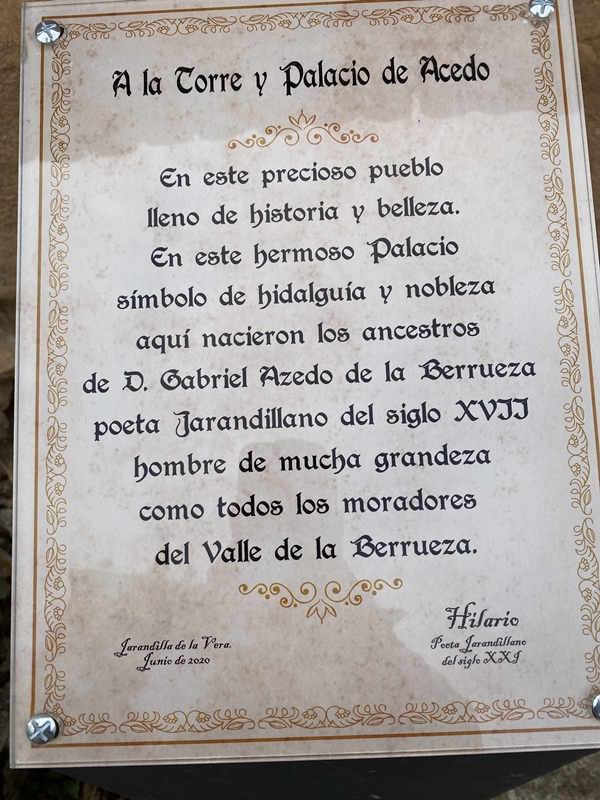 A la Torre y Palacio de Acedo
En este precioso pueblo
lleno de historia y belleza.
En este hermoso Palacio
símbolo de hidalguía y nobleza
aquí nacieron los ancestros
de D. Gabriel Azedo de la Berrueza
poeta Jarandillano del siglo XVII
hombre de mucha grandeza
como todos los moradores
del Valle de la Berrueza.
Jarandilla de la Vera.
Junio de 2020
Hilario
Poeta Jarandillano
del siglo XXI